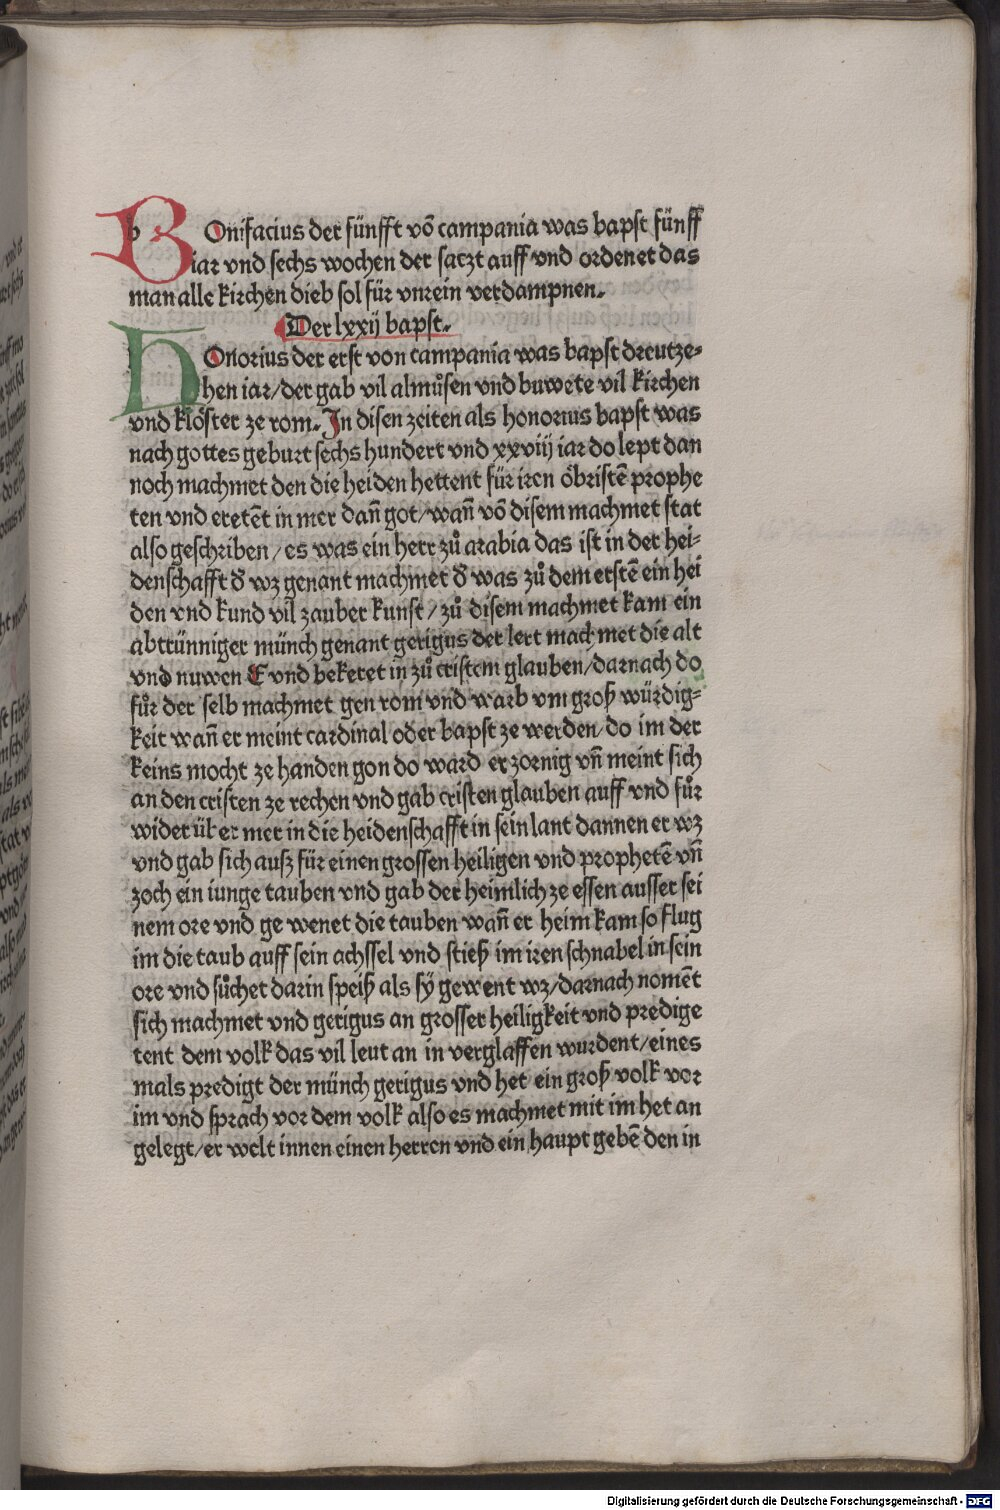 BOnifacius der fünfft võ campania was bapst fünff
iar vnd sechs wochen der satzt auff vnd ordenet das
man alle kirchen dieb sol für vnrein verdampnen.
Der lxxij bapst.
HOnorius der erst von campania was bapst dreutze-
hen iar/der gab vil almůsen vnd buwete vil kirchen
vnd klöster ze rom. In disen zeiten als honorius bapst was
nach gottes geburt sechs hundert vnd xxviij iar do lept dan
noch machmet den die heiden hettent für iren öbristẽ prophe
ten vnd eretẽt in mer dañ got/wañ võ disem machmet stat
also geschriben/es was ein herr zů arabia das ist in der hei-
denschafft d̕ wz genant machmet d̕ was zů dem erstẽ ein hei
den vnd kund vil zauber kunst/zů disem machmet kam ein
abtrünniger münch genant gerigus der lert machmet die alt
vnd nuwen E vnd bekeret in zů cristem glauben/darnach do
fůr der selb machmet gen rom vnd warb vm groß würdig-
keit wañ er meint cardinal oder bapst ze werden/do im der
keins mocht ze handen gon do ward er zornig vñ meint sich
an den cristen ze rechen vnd gab cristen glauben auff vnd fůr
wider über mer in die heidenschafft in sein lant dannen er wz
vnd gab sich ausz für einen grossen heiligen vnd prophetẽ vñ
zoch ein iunge tauben vnd gab der heimlich ze essen ausser sei
nem ore vnd ge wenet die tauben wañ er heim kam so flug
im die taub auff sein achssel vnd stieß im iren schnabel in sein
ore vnd sůchet darin speiß als sÿ gewent wz/darnach nomẽt
sich machmet vnd gerigus an grosser heiligkeit vnd predige
tent dem volk das vil leut an in verglaffen wurdent/eines
mals predigt der münch gerigus vnd het ein groß volk vor
im vnd sprach vor dem volk also es machmet mit im het an
gelegt/er welt innen einen herren vnd ein haupt gebẽ den in
Digitalisierung gefördert durch die Deutsche Forschungsgemeinschaft - DFG